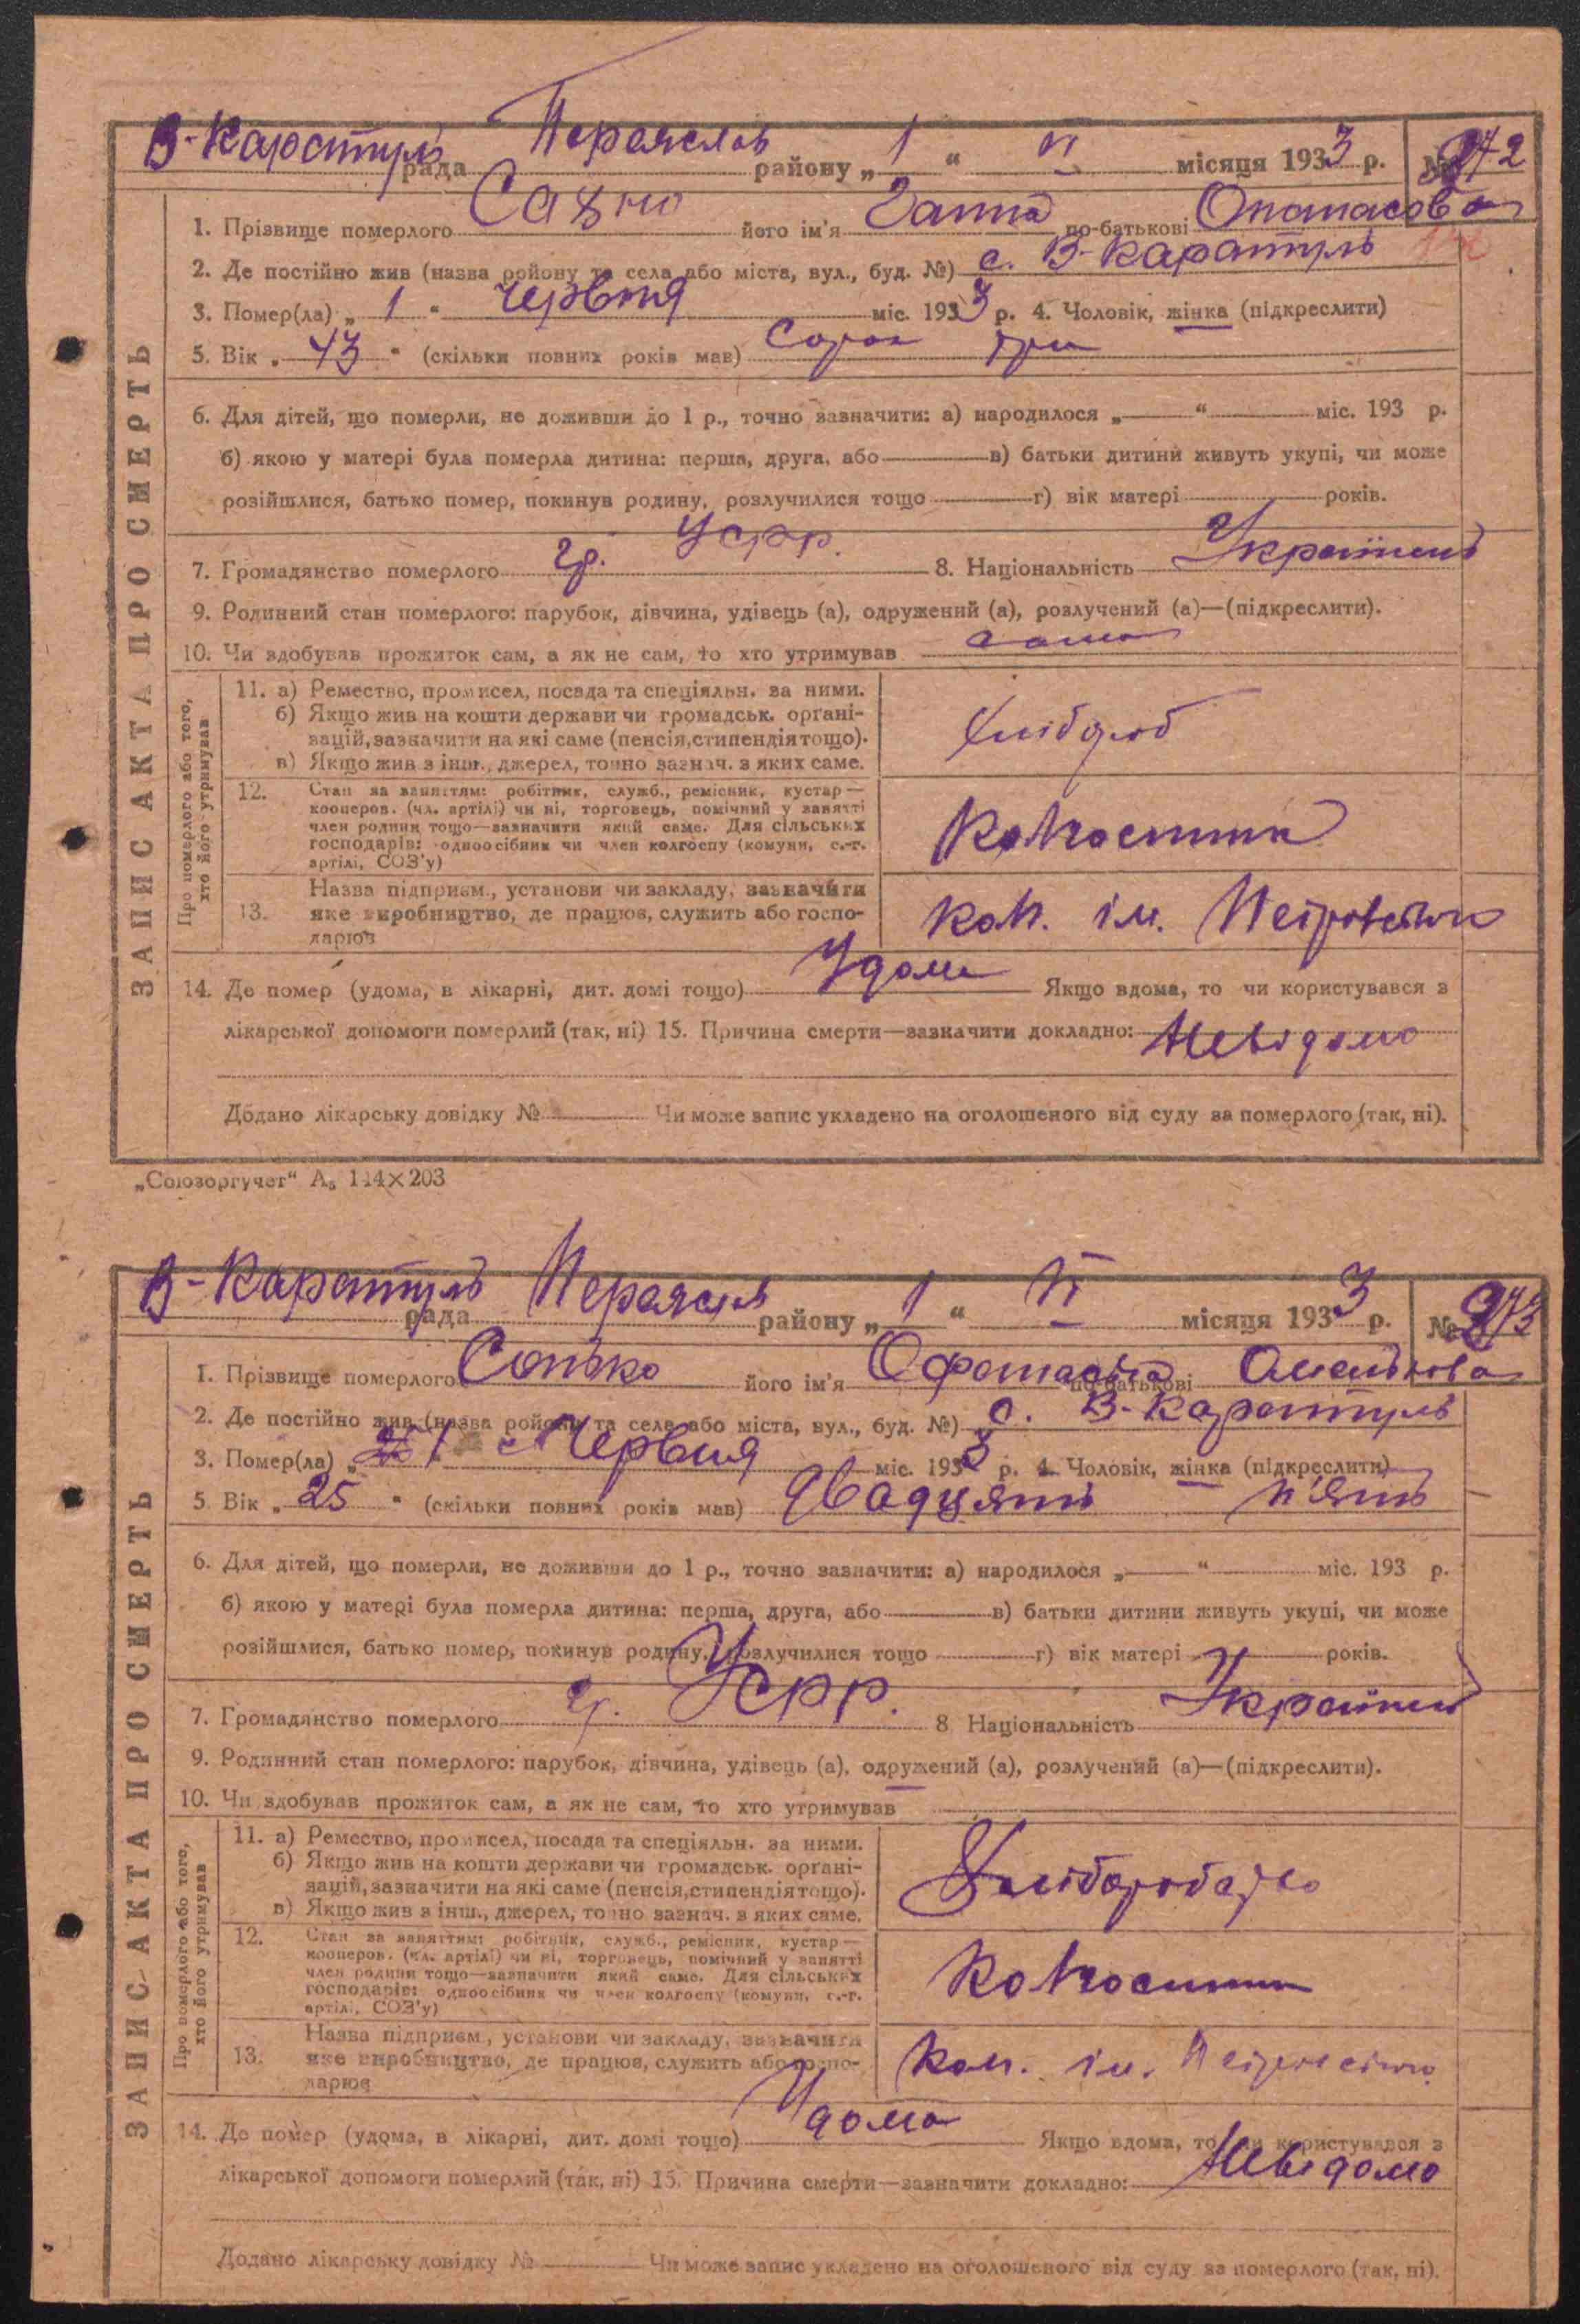 В-Каратуль рада Переяслов району „ 1 “ VI місяця 1933 р. № 272
1. Прізвище померлого Сахно його ім'я Ганна по-батькові Опанасова
2. Де постійно жив (назва ройону та села або міста, вул., буд. №) с. В-Каратуль
3. Помер(ла) „ 1 “ червня міс. 1933 р. 4. Чоловік, жінка (підкреслити)
5. Вік „ 43 “ (скільки повних років мав) Сорок три
6. Для дітей, що померли, не доживши до 1 р., точно зазначити: а) народилося „ “ міс. 193 р.
б) якою у матері була померла дитина: перша, друга, або в) батьки дитини живуть укупі, чи може
розійшлися, батько помер, покинув родину, розлучилися тощо г) вік матері років.
7. Громадянство померлого гр. УСРР. 8. Національність Українець
9. Родинний стан померлого: парубок, дівчина, удівець (а), одружений (а), розлучений (а)—(підкреслити).
10. Чи здобував прожиток сам, а як не сам, то хто утримував сама
ЗАПИС АКТА ПРО СМЕРТЬ
Про померлого або того, хто його утримував
11. а) Ремество, промисел, посада та спеціяльн. за ними.
б) Якщо жив на кошти держави чи громадськ. орґані-
зацій, зазначити на які саме (пенсія, стипендія тощо).
в) Якщо жив з інш., джерел, точно зазнач. з яких саме.
Хлібороб
12. Стан за заняттям: робітник, служб., ремісник, кустар—
кооперов. (чл. артілі) чи ні, торговець, помічний у занятті
член родини тощо—зазначити який саме. Для сільських
господарів: одноосібник чи член колгоспу (комуни, с.-г.
артілі, СОЗ'у)
Колгоспник
13. Назва підприєм., установи чи закладу, зазначити
яке виробництво, де працює, служить або госпо-
дарює
Кол. ім. Петровського
14. Де помер (удома, в лікарні, дит. домі тощо) Удома Якщо вдома, то чи користувався з
лікарської допомоги померлий (так, ні) 15. Причина смерти—зазначити докладно: Невідомо
Додано лікарську довідку № Чи може запис укладено на оголошеного від суду за померлого (так, ні).
„Союзоргучет“ А₅ 144×203
В-Каратуль рада Переяслів району „ 1 “ VI місяця 1933 р. № 273
1. Прізвище померлого Сопько його ім'я Офанасія по-батькові Омелькова
2. Де постійно жив (назва ройону та села або міста, вул., буд. №) с. В-Каратуль
3. Помер(ла) „ 1 “ Червня міс. 1933 р. 4. Чоловік, жінка (підкреслити)
5. Вік „ 25 “ (скільки повних років мав) Двадцять п'ять
6. Для дітей, що померли, не доживши до 1 р., точно зазначити: а) народилося „ “ міс. 193 р.
б) якою у матері була померла дитина: перша, друга, або в) батьки дитини живуть укупі, чи може
розійшлися, батько помер, покинув родину, розлучилися тощо г) вік матері років.
7. Громадянство померлого гр. УСРР. 8 Національність Українець
9. Родинний стан померлого: парубок, дівчина, удівець (а), одружений (а), розлучений (а)—(підкреслити).
10. Чи здобував прожиток сам, а як не сам, то хто утримував
ЗАПИС АКТА ПРО СМЕРТЬ
Про померлого або того, хто його утримував
11. а) Ремество, промисел, посада та спеціяльн. за ними.
б) Якщо жив на кошти держави чи громадськ. орґані-
зацій, зазначити на які саме (пенсія, стипендія тощо).
в) Якщо жив з інш., джерел, точно зазнач. з яких саме.
12. Стан за заняттям: робітник, служб., ремісник, кустар—
кооперов. (чл. артілі) чи ні, торговець, помічний у занятті
член родини тощо—зазначити який саме. Для сільських
господарів: одноосібник чи член колгоспу (комуни, с.-г.
артілі, СОЗ'у)
Колгоспник
13. Назва підприєм., установи чи закладу, зазначити
яке виробництво, де працює, служить або госпо-
дарює
Кол. ім. Петровського
14. Де помер (удома, в лікарні, дит. домі тощо) Удома Якщо вдома, то чи користувався з
лікарської допомоги померлий (так, ні) 15. Причина смерти—зазначити докладно: Невідомо
Додано лікарську довідку № Чи може запис укладено на оголошеного від суду за померлого (так, ні).